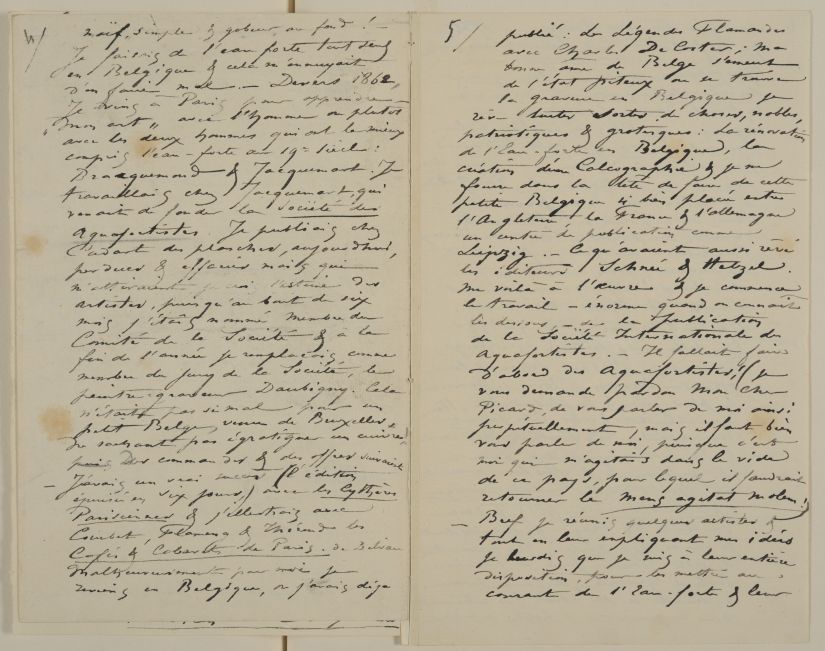 4/
naïf, simple & gobeur, au fond !—
Je faisais de l'eau forte tout seul
en Belgique & cela m'ennuyait
d'en faire mal. — Devers 1862,
Je vins à Paris pour apprendre
"mon art" avec l'homme ou plutôt
avec les deux hommes qui ont le mieux
compris l'eau-forte au 19e siècle :
Bracquemond & Jacquemart. Je
travaillais chez Jacquemart qui
venait de fonder la Société des
Aquafortistes. Je publiais chez
Cadart des planches, aujourd'hui,
perdues & effacées mais qui
m'attirèrent l'estime des
artistes, puisqu'au bout de six
mois j'étais nommé membre du
Comité de la Société & à la
fin de l'année je remplaçais comme
membre du jury de la Société, le
peintre-graveur Daubigny. Cela
n'était pas si mal pour un
petit Belge, venu de Bruxelles,
ne sachant pas égratigner un cuivre
Des commandes & des offres suivaient
— J'avais un vrai succès (l'édition
épuisée en six jours,) avec les Cythères
Parisiennes & j'illustrais avec
Courbet, Flameng & Thérond les
Cafés & Cabarets de Paris, de Delvau
Malheureusement pour moi je
revins en Belgique, où j'avais déjà
5/
publié : les Légendes Flamandes
avec Charles De Coster ; ma
bonne âme de Belge s'émeut
de l'état piteux où se trouve
la gravure en Belgique je
rêve toutes sortes de choses, nobles,
patriotiques & grotesques : la rénovation
de l'Eau-forte en Belgique, la
création d'une Calcographie & je me
fourre dans la tête de faire de cette
petite Belgique si bien placée entre
l'Angleterre la France & l'Allemagne
un centre de publication comme
Leipzig. — Ce qu'avaient aussi rêvé
les éditeurs Schnée & Hetzel.
Me voilà à l'œuvre & je commence
le travail — énorme quand on connait
les dessous — de la publication
de la Société Internationale des
Aquafortistes. — Il fallait faire
d'abord des Aquafortistes, ! (Je
vous demande pardon Mon cher
Picard, de vous parler de moi aussi
perpétuellement, mais il faut bien
vous parler de moi, puisque c'est
moi qui m'agitais dans le vide
de ce pays, pour lequel il faudrait
retourner le Mens agitat molem !)
— Bref je réunis quelques artistes &
tout en leur expliquant mes idées
Je leur dis que je suis à leur entière
disposition, pour les mettre au
courant de l'Eau-forte & leur